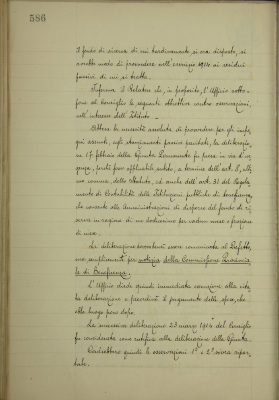 586
il fondo di riserva di cui tardivamente si era disposto, si
avrebbe modo di provvedere nell'esercizio 1914 ai residui
passivi di cui si tratta.
Informa il Relatore che, in proposito, l'Ufficio
al Consiglio le seguenti obbiettive osservazioni,
nell'interesse dell'Istituto.
Ritiene la necessità assoluta di provvedere per gli
qui accennati, agli stanziamenti passivi residuati, la delibera
17 febbraio della Giunta fu presa in via d'ur
genza, perché fosse applicabile subito, a termine dell'art. 8,
comma, dello Statuto, ed anche dell'art. 31 del Regola
mento di Contabilità delle Istituzioni pubbliche di beneficenza
che consente alle Amministrazioni di disporre del fondo di ri
serva in ragione di un dodicesimo per ciascun mese o frazione
di mese.
La deliberazione venne comunicata al Prefetto,
per notizia della Commissione Provincia
le di Beneficenza.
L'Ufficio diede quindi immediata esecuzione alla
ta deliberazione e provvedendo il pagamento delle spese, che
ebbe luogo poco dopo.
La successiva deliberazione 23 marzo 1914 del Consiglio
fu considerata come ratifica alla deliberazione della Giunta.
Cadrebbero quindi le osservazioni 1ª e 2ª sopra ripor
tate.